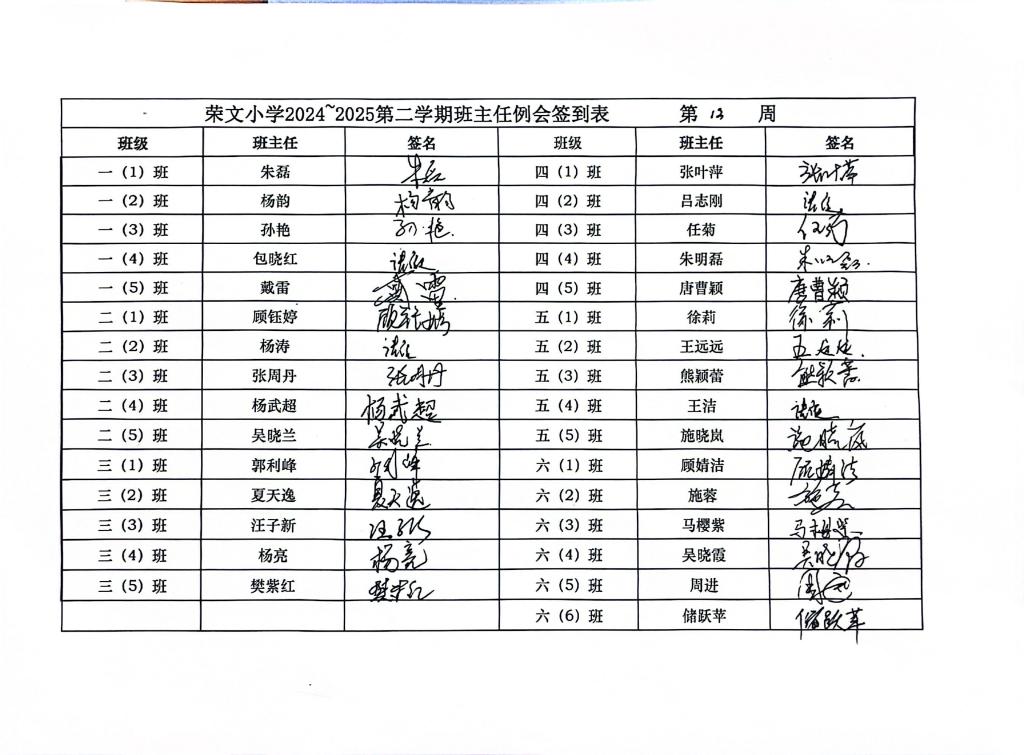 荣文小学2024~2025第二学期班主任例会签到表 第 12 周
班级 班主任 签名 班级 班主任 签名
一（1）班 朱磊 朱磊 四（1）班 张叶萍 张叶萍
一（2）班 杨韵 杨韵 四（2）班 吕志刚 请假
一（3）班 孙艳 孙艳 四（3）班 任菊 任菊
一（4）班 包晓红 请假 四（4）班 朱明磊 朱明磊
一（5）班 戴雷 戴雷 四（5）班 唐曹颖 唐曹颖
二（1）班 顾钰婷 顾钰婷 五（1）班 徐莉 徐莉
二（2）班 杨涛 请假 五（2）班 王远远 王远远
二（3）班 张周丹 张周丹 五（3）班 熊颖蕾 熊颖蕾
二（4）班 杨武超 杨武超 五（4）班 王洁 请假
二（5）班 吴晓兰 吴晓兰 五（5）班 施晓岚 施晓岚
三（1）班 郭利峰 郭利峰 六（1）班 顾婧洁 顾婧洁
三（2）班 夏天逸 夏天逸 六（2）班 施蓉 施蓉
三（3）班 汪子新 汪子新 六（3）班 马樱紫 马樱紫
三（4）班 杨亮 杨亮 六（4）班 吴晓霞 吴晓霞
三（5）班 樊紫红 樊紫红 六（5）班 周进 周进
六（6）班 储跃苹 储跃苹